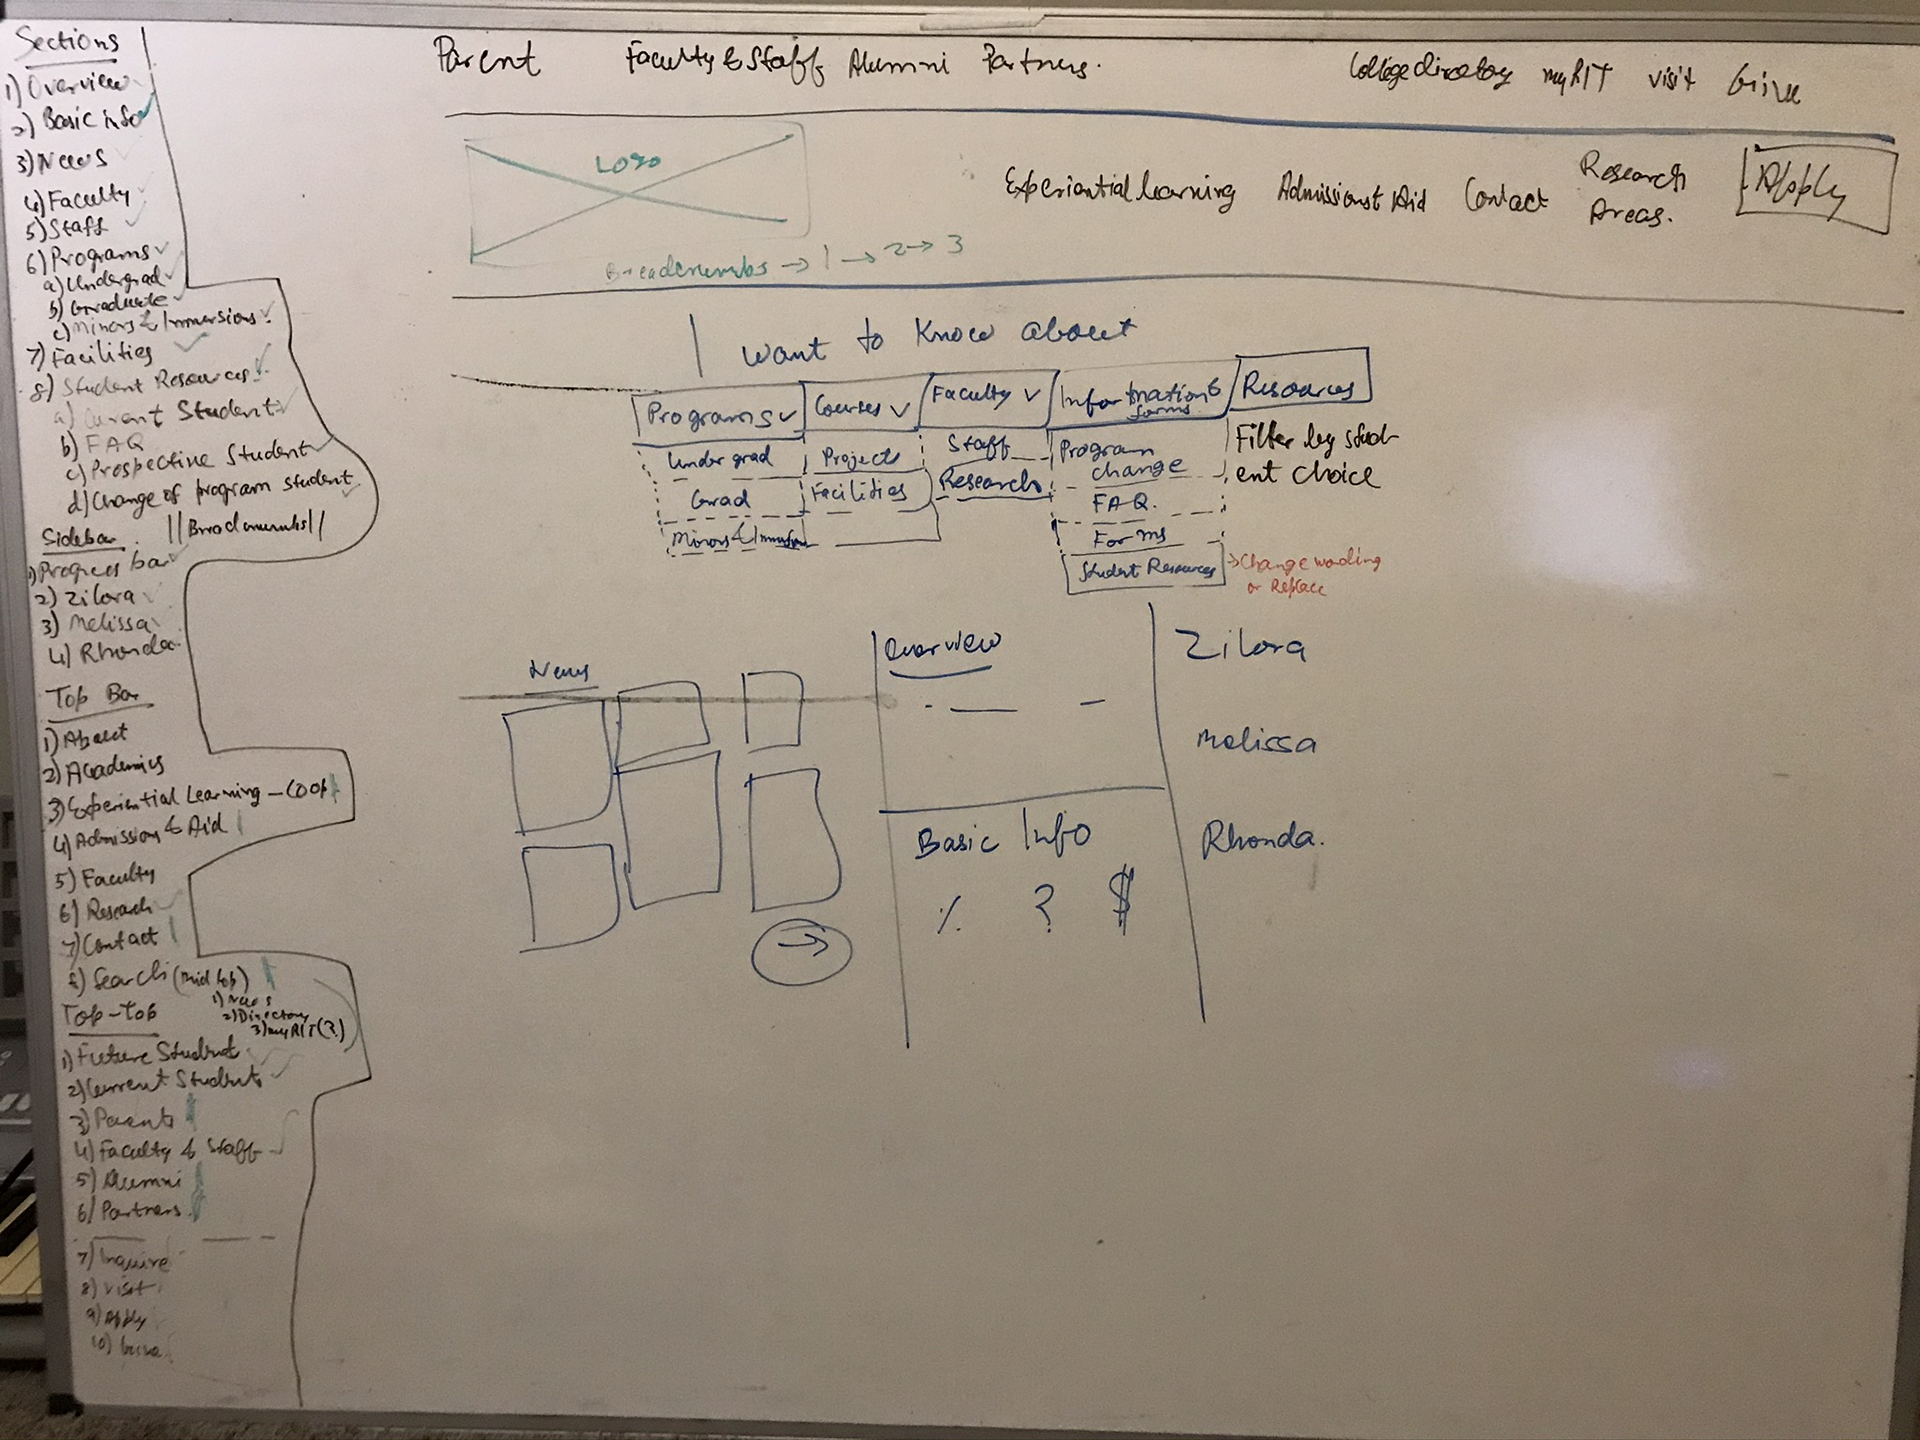 Sections
1) Overview
2) Basic info
3) News
4) Faculty
5) Staff
6) Programs
a) Undergrad
b) Graduate
c) Minors & Immersions
7) Facilities
8) Student Resources
a) Current Student
b) FAQ
c) Prospective Student
d) Change of program student
||Breadcrumbs||
Sidebar
1) Progress bar
2) Zilora
3) Melissa
4) Rhonda
Top Bar
1) About
2) Academics
3) Experiential Learning - COOP
4) Admission & Aid
5) Faculty
6) Research
7) Contact
8) Search (mid top)
1) News
2) Directory
3) myRIT (?)
Top-Top
1) Future Student
2) Current Students
3) Parents
4) Faculty & Staff
5) Alumni
6) Partners
7) Inquire
8) visit
9) Apply
10) Give
Parent Faculty & Staff Alumni Partners.
College directory myRIT visit Give
Logo
Breadcrumbs → 1 → 2 → 3
Experiential learning Admissions & Aid Contact Research Areas. Apply
I want to Know about
Programs Courses Faculty Information & forms Resources
Undergrad
Grad
Minors & Immersion
Projects
Facilities
Staff
Research
Program change
FAQ.
Forms
Student Resources
→ Change wording
or Replace
Filter by stud-
ent choice
News
Overview
Basic Info
% ? $
Zilora
Melissa
Rhonda.